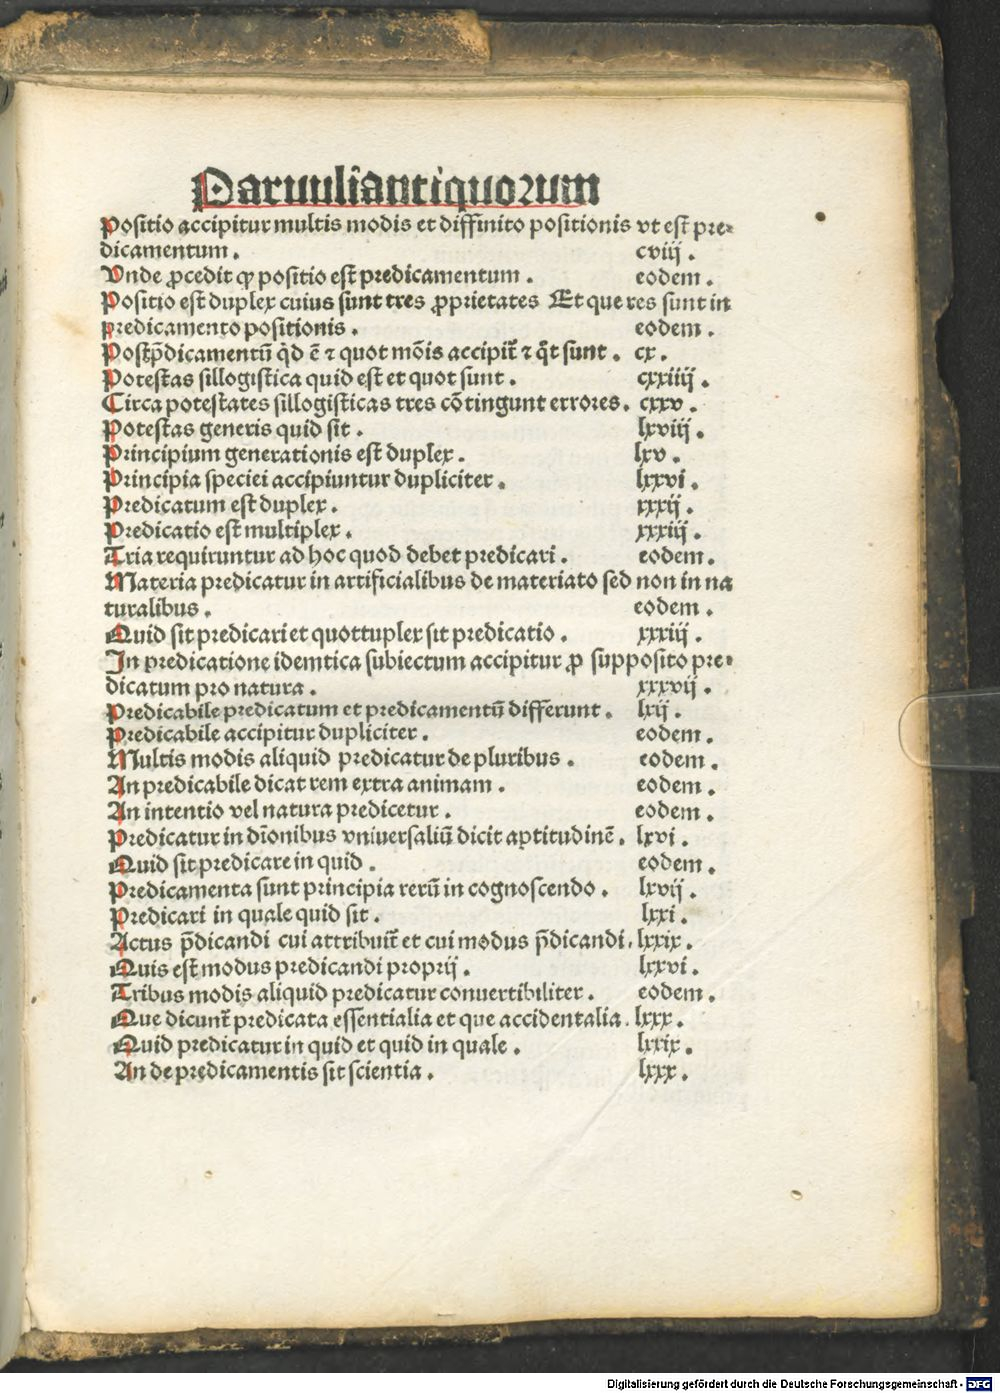 Paruuliantiquorum
Positio accipitur multis modis et diffinito positionis vt est pre-
dicamentum. cviij.
Vnde ꝓcedit ꝙ positio est predicamentum. eodem.
Positio est duplex cuius sunt tres ꝓprietates Et que res sunt in
predicamento positionis. eodem.
Postp̄dicamentū q̇d ē ⁊ quot mōis accipit᷑ ⁊ q̇t sunt. cx.
Potestas sillogistica quid est et quot sunt. cxxiiij.
Circa potestates sillogisticas tres cōtingunt errores. cxxv.
Potestas generis quid sit. lxviij.
Principium generationis est duplex. lxv.
Principia speciei accipiuntur dupliciter. lxxvi.
Predicatum est duplex. xxxij.
Predicatio est multiplex. xxxiij.
Tria requiruntur ad hoc quod debet predicari. eodem.
Materia predicatur in artificialibus de materiato sed non in na
turalibus. eodem.
Quid sit predicari et quottuplex sit predicatio. xxxiij.
In predicatione idemtica subiectum accipitur ꝓ supposito pre-
dicatum pro natura. xxxvij.
Predicabile predicatum et predicamentū differunt. lxij.
Predicabile accipitur dupliciter. eodem.
Multis modis aliquid predicatur de pluribus. eodem.
An predicabile dicat rem extra animam. eodem.
An intentio vel natura predicetur. eodem.
Predicatur in dīonibus vniuersaliū dicit aptitudinē. lxvi.
Quid sit predicare in quid. eodem.
Predicamenta sunt principia rerū in cognoscendo. lxvij.
Predicari in quale quid sit. lxxi.
Actus p̄dicandi cui attribuit᷑ et cui modus p̄dicandi. lxxix.
Quis est modus predicandi proprij. lxxvi.
Tribus modis aliquid predicatur conuertibiliter. eodem.
Que dicunt᷑ predicata essentialia et que accidentalia. lxxx.
Quid predicatur in quid et quid in quale. lxxix.
An de predicamentis sit scientia. lxxx.
Digitalisierung gefördert durch die Deutsche Forschungsgemeinschaft - DFG